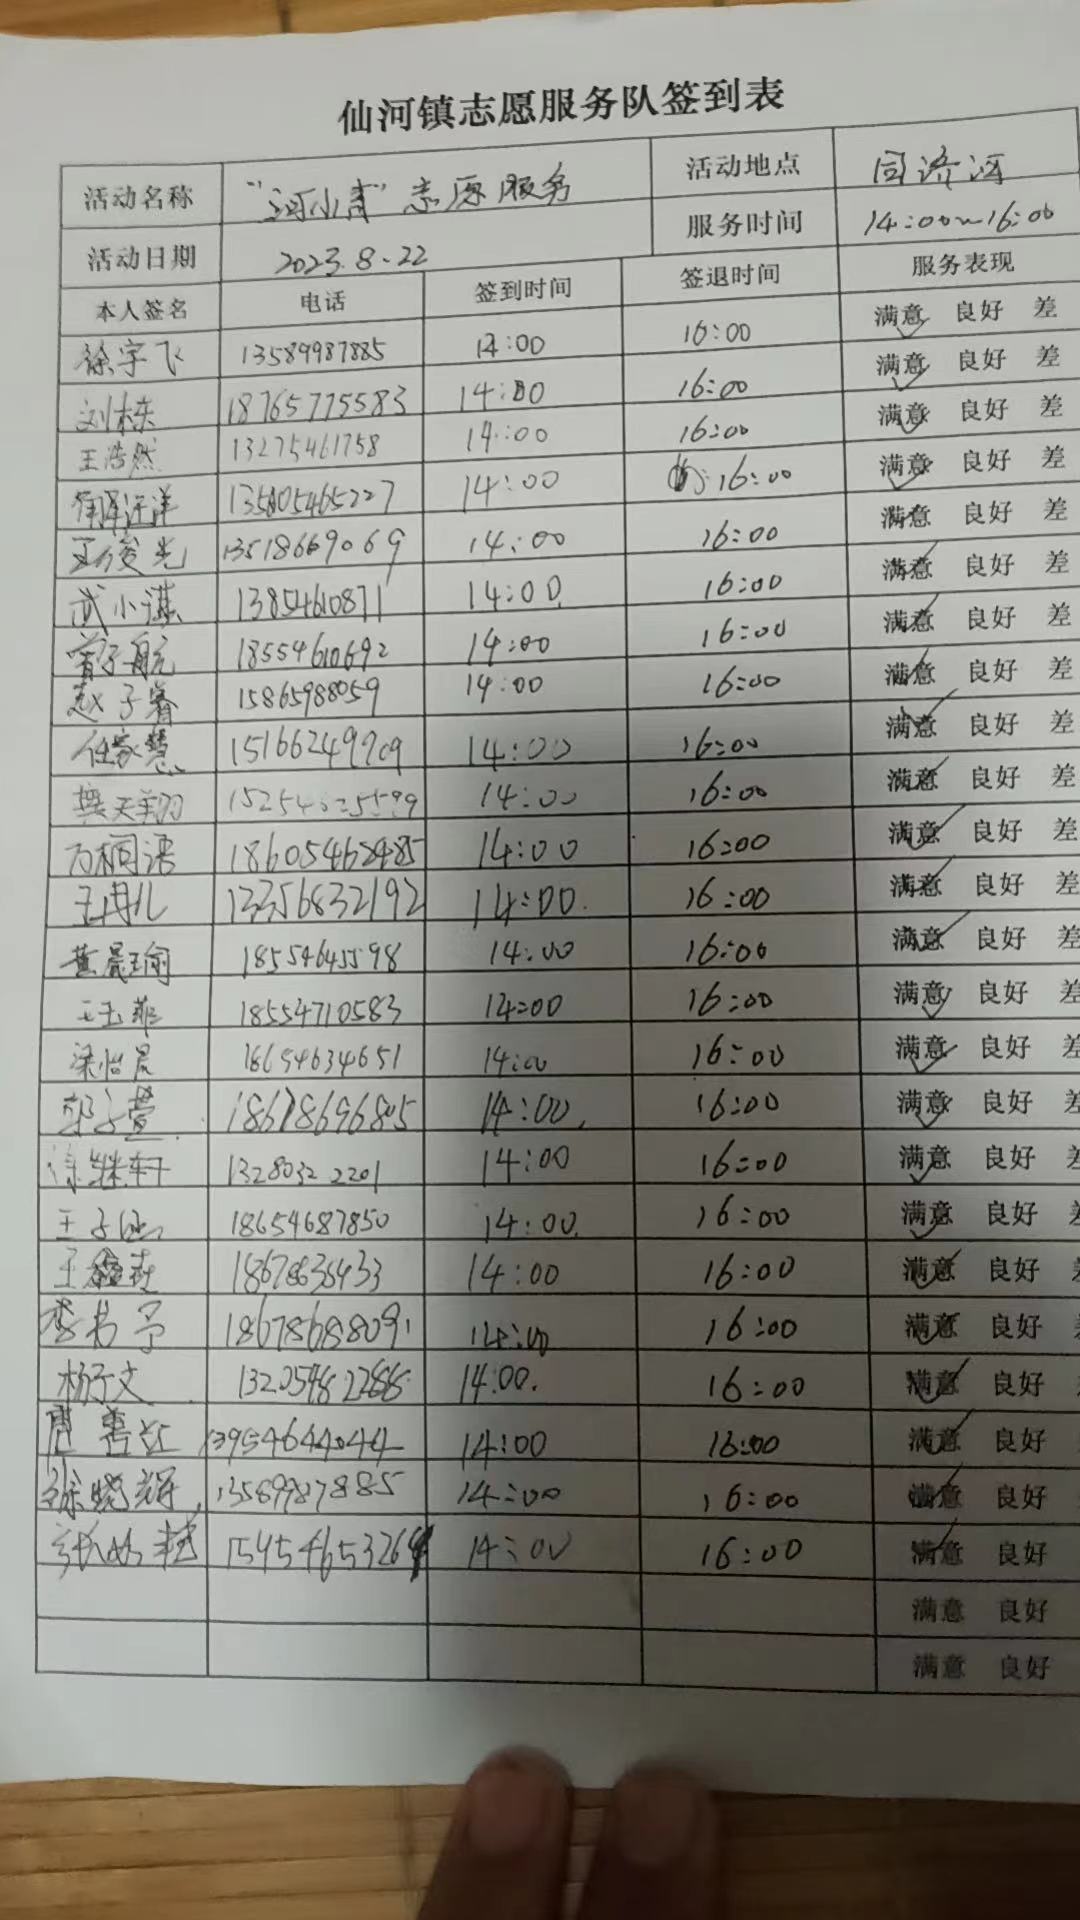 仙河镇志愿服务队签到表
活动名称 "河小青"志愿服务 活动地点 同济河
活动日期 2023.8.22 服务时间 14:00~16:00
本人签名 电话 签到时间 签退时间 服务表现
徐宇飞 13589987885 14:00 16:00 满意 良好 差
刘栋 18765775583 14:00 16:00 满意 良好 差
王浩然 13275461758 14:00 16:00 满意 良好 差
135805465227 14:00 16:00 满意 良好 差
13518669069 14:00 16:00 满意 良好 差
武小谋 13854610871 14:00 16:00 满意 良好 差
曾子航 18554610692 14:00 16:00 满意 良好 差
赵子睿 15865988059 14:00 16:00 满意 良好 差
任家慧 15166249909 14:00 16:00 满意 良好 差
樊天翔 14:00 16:00 满意 良好 差
万桐语 18605462485 14:00 16:00 满意 良好 差
王冉儿 13356832192 14:00 16:00 满意 良好 差
黄晨瑜 18554645598 14:00 16:00 满意 良好 差
王玉菲 18554710583 14:00 16:00 满意 良好 差
梁怡晨 18654634651 14:00 16:00 满意 良好 差
郭子萱 18678696805 14:00 16:00 满意 良好 差
徐继轩 13280322201 14:00 16:00 满意 良好 差
王子涵 18654687850 14:00 16:00 满意 良好 差
王鑫垚 14:00 16:00 满意 良好
李书予 18678688091 14:00 16:00 满意 良好
杨子文 13205482286 14:00 16:00 满意 良好
唐善红 13954644044 14:00 16:00 满意 良好
徐晓辉 13589987885 14:00 16:00 满意 良好
14:00 16:00 满意 良好
满意 良好
满意 良好